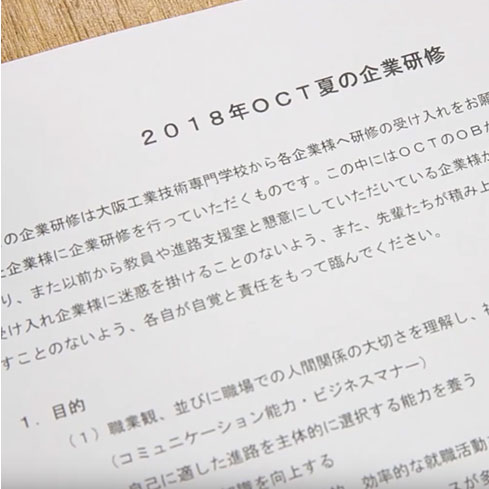 ２０１８年ＯＣＴ夏の企業研修
の企業研修は大阪工業技術専門学校から各企業様へ研修の受け入れをお願
た企業様に企業研修を行っていただくものです。この中にはＯＣＴのＯＢが
り、また以前から教員や進路支援室と懇意にしていただいている企業様が
受け入れ企業様に迷惑を掛けることのないよう、また、先輩たちが積み上
すことのないよう、各自が自覚と責任をもって臨んでください。
１．目的
（１）職業観、並びに職場での人間関係の大切さを理解し、社
（コミュニケーション能力・ビジネスマナー）
自己に適した進路を主体的に選択する能力を養う
識を向上する
的、効率的な就職活動
スが多